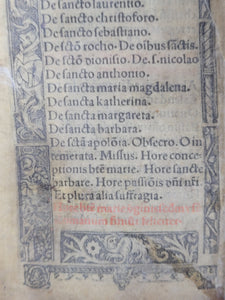 De sancto laurentio.
De sancto christoforo.
De sancto sebastiano.
De sctō rocho. De oībus sāctis.
De sctō dionisio. De .s. nicolao
De sancto anthonio.
De sancta maria magdalena.
De sancta katherina.
De sancta margareta.
De sancta barbara.
De sctā apolōia. Obsecro. O in
temerata. Missus. Hore conce
ptionis btē marie. Hore sancte
barbare. Hore passiōis dn̄i nr̄i
Et plura alia suffragia.
feliciter